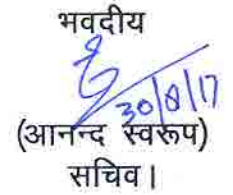 भवदीय
30/8/17
(आनन्द स्वरूप)
सचिव।